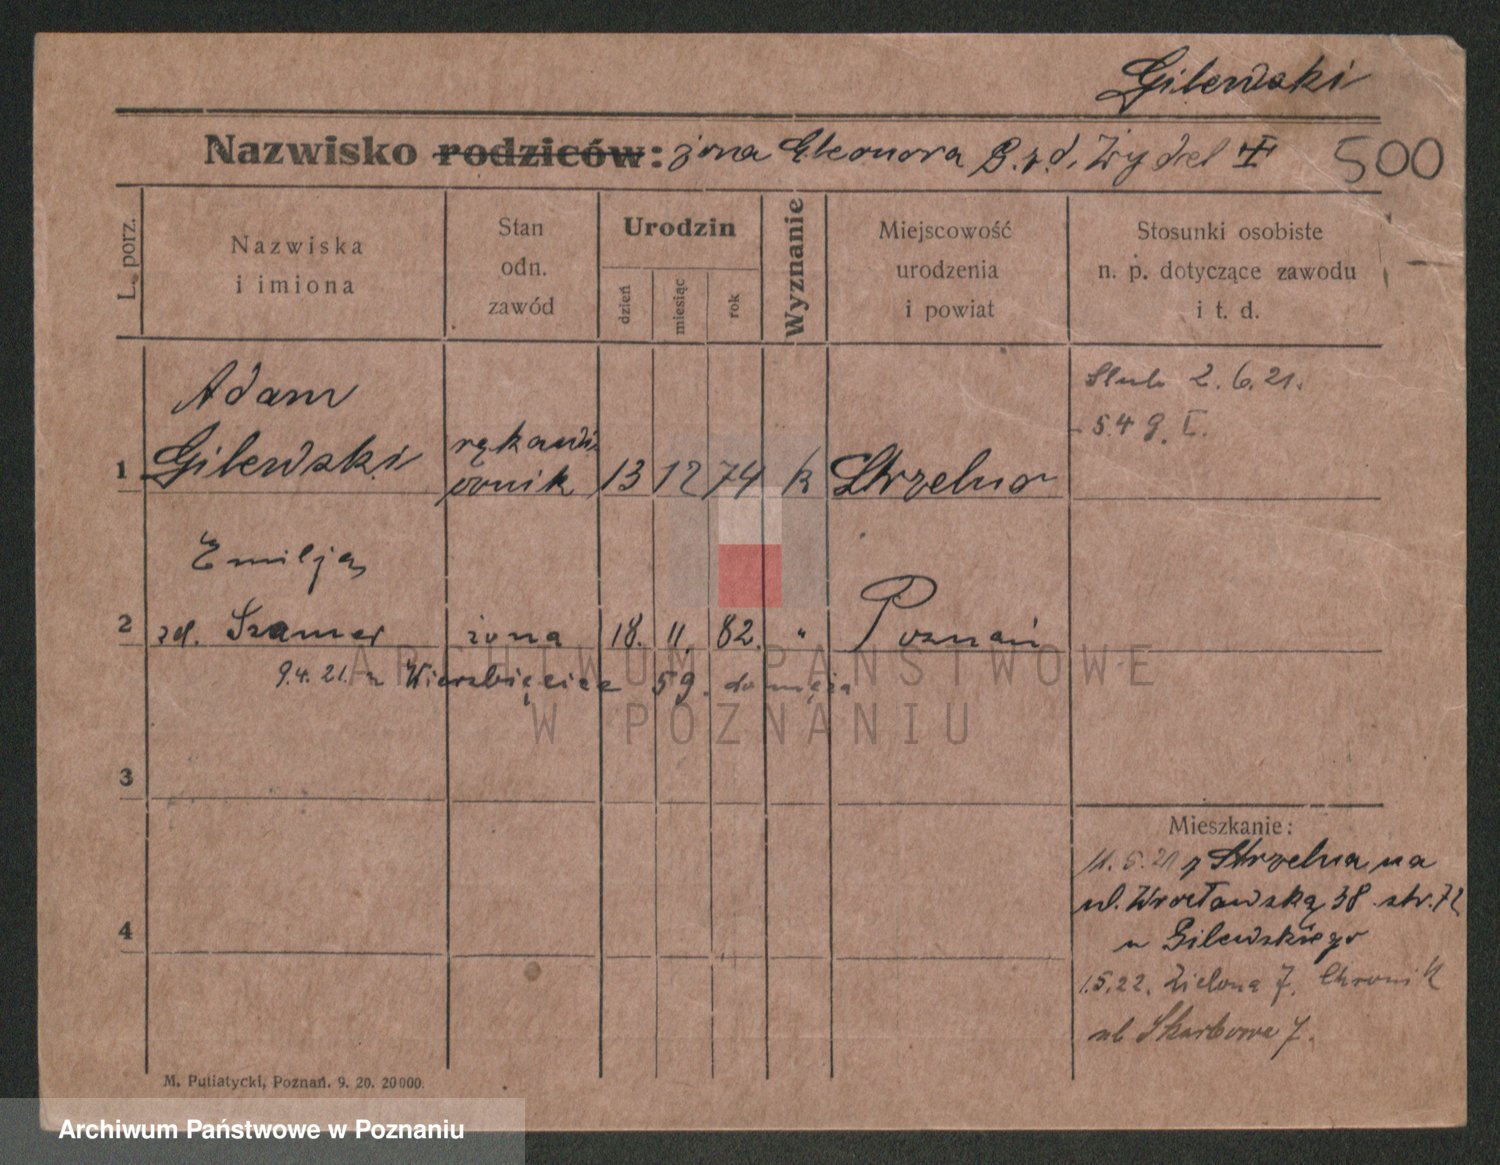 Gilewski
Nazwisko rodziców: żona Eleonora Żydel 500
L. porz.
Nazwiska
i imiona
Stan
odn.
zawód
Urodzin
dzień
miesiąc
rok
Wyznanie
Miejscowość
urodzenia
i powiat
Stosunki osobiste
n. p. dotyczące zawodu
i t. d.
Adam
1 Gilewski rękawicznik 13 12 74 k Strzelno
Ślub 2.6.21.
549. I.
Emilja
2 zd. Szamer żona 18. 11. 82. " Poznań
9.4.21. Wierzbięcice 59. do męża
3
4
Mieszkanie:
11.5.21 z Strzelna na
ul. Wrocławską 38. str. 72
u Gilewskiego
1.5.22. Zielona 7. Chronik
ul Skarbowa 7.
M. Putiatycki, Poznań. 9. 20. 20000.
ARCHIWUM PAŃSTWOWE
W POZNANIU
Archiwum Państwowe w Poznaniu